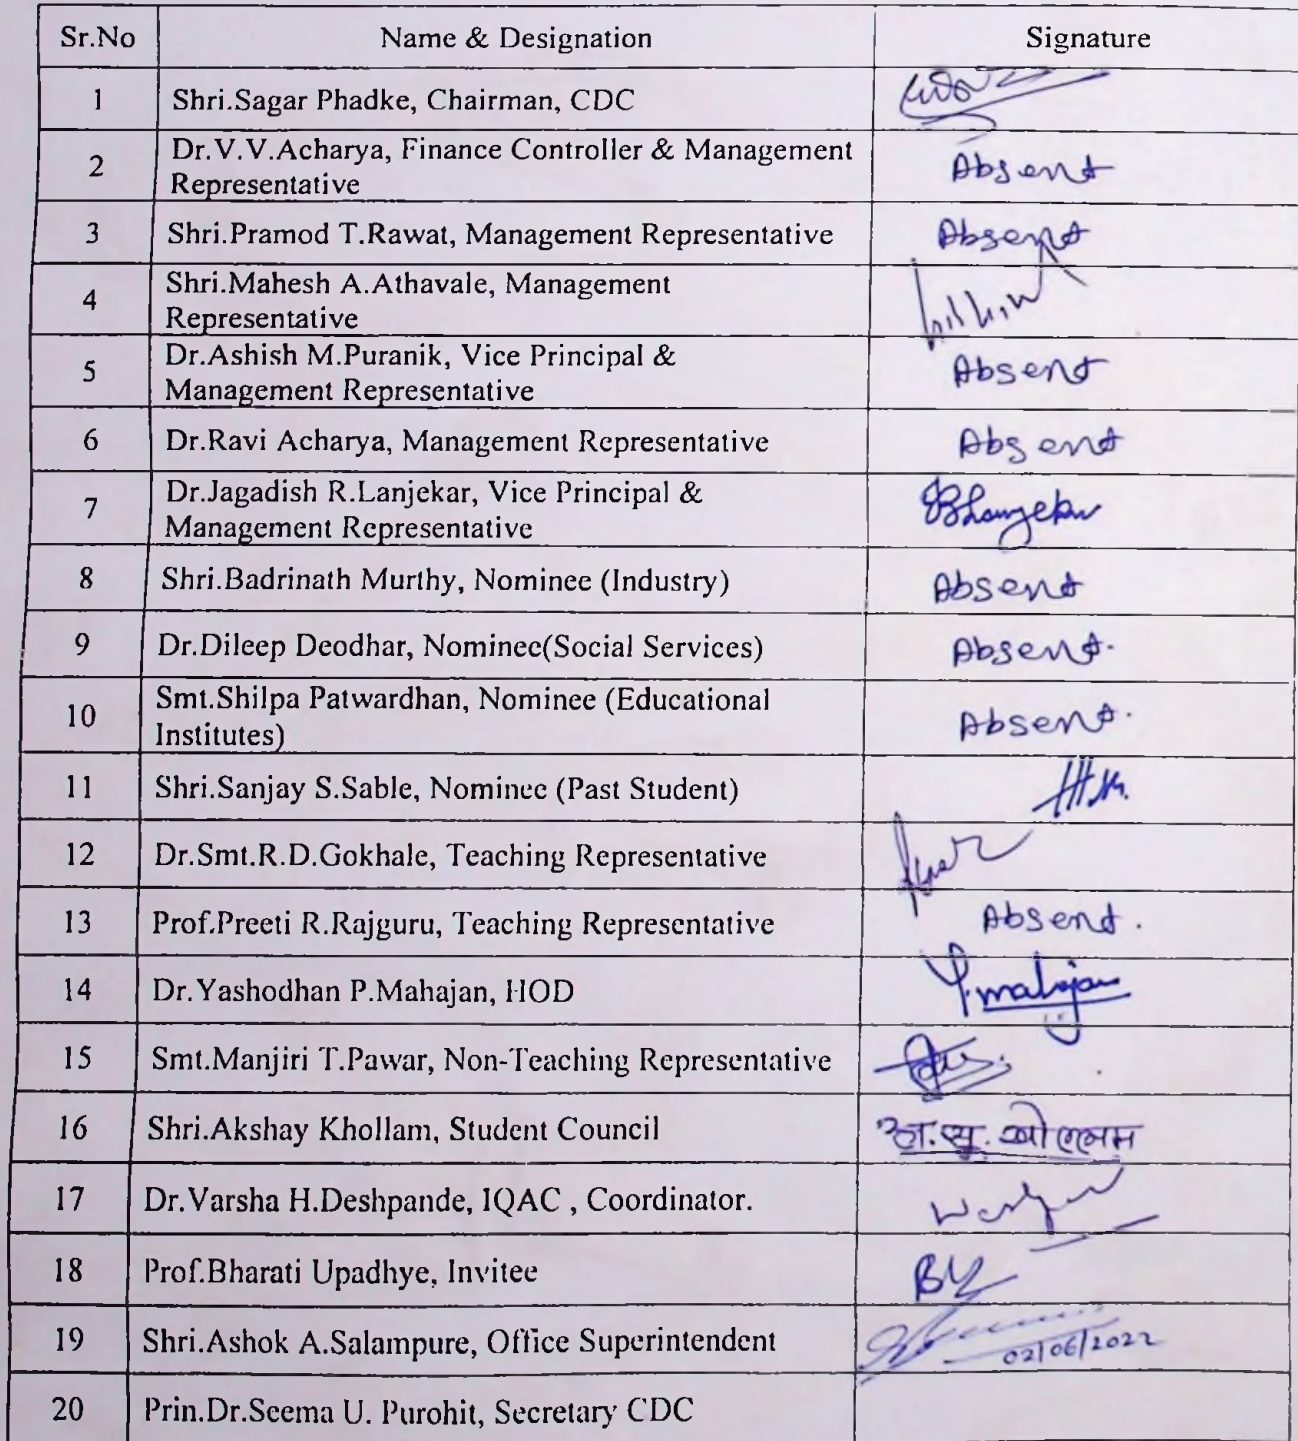 Sr.No Name & Designation Signature
1 Shri.Sagar Phadke, Chairman, CDC
2 Dr.V.V.Acharya, Finance Controller & Management
Representative Absent
3 Shri.Pramod T.Rawat, Management Representative Absent
4 Shri.Mahesh A.Athavale, Management
Representative
5 Dr.Ashish M.Puranik, Vice Principal &
Management Representative Absent
6 Dr.Ravi Acharya, Management Representative Absent
7 Dr.Jagadish R.Lanjekar, Vice Principal &
Management Representative
8 Shri.Badrinath Murthy, Nominee (Industry) Absent
9 Dr.Dileep Deodhar, Nominee(Social Services) Absent.
10 Smt.Shilpa Patwardhan, Nominee (Educational
Institutes) Absent.
11 Shri.Sanjay S.Sable, Nominee (Past Student)
12 Dr.Smt.R.D.Gokhale, Teaching Representative
13 Prof.Preeti R.Rajguru, Teaching Representative Absent.
14 Dr.Yashodhan P.Mahajan, HOD Y.mahajan
15 Smt.Manjiri T.Pawar, Non-Teaching Representative
16 Shri.Akshay Khollam, Student Council
17 Dr.Varsha H.Deshpande, IQAC , Coordinator.
18 Prof.Bharati Upadhye, Invitee
19 Shri.Ashok A.Salampure, Office Superintendent 02/06/2022
20 Prin.Dr.Seema U. Purohit, Secretary CDC